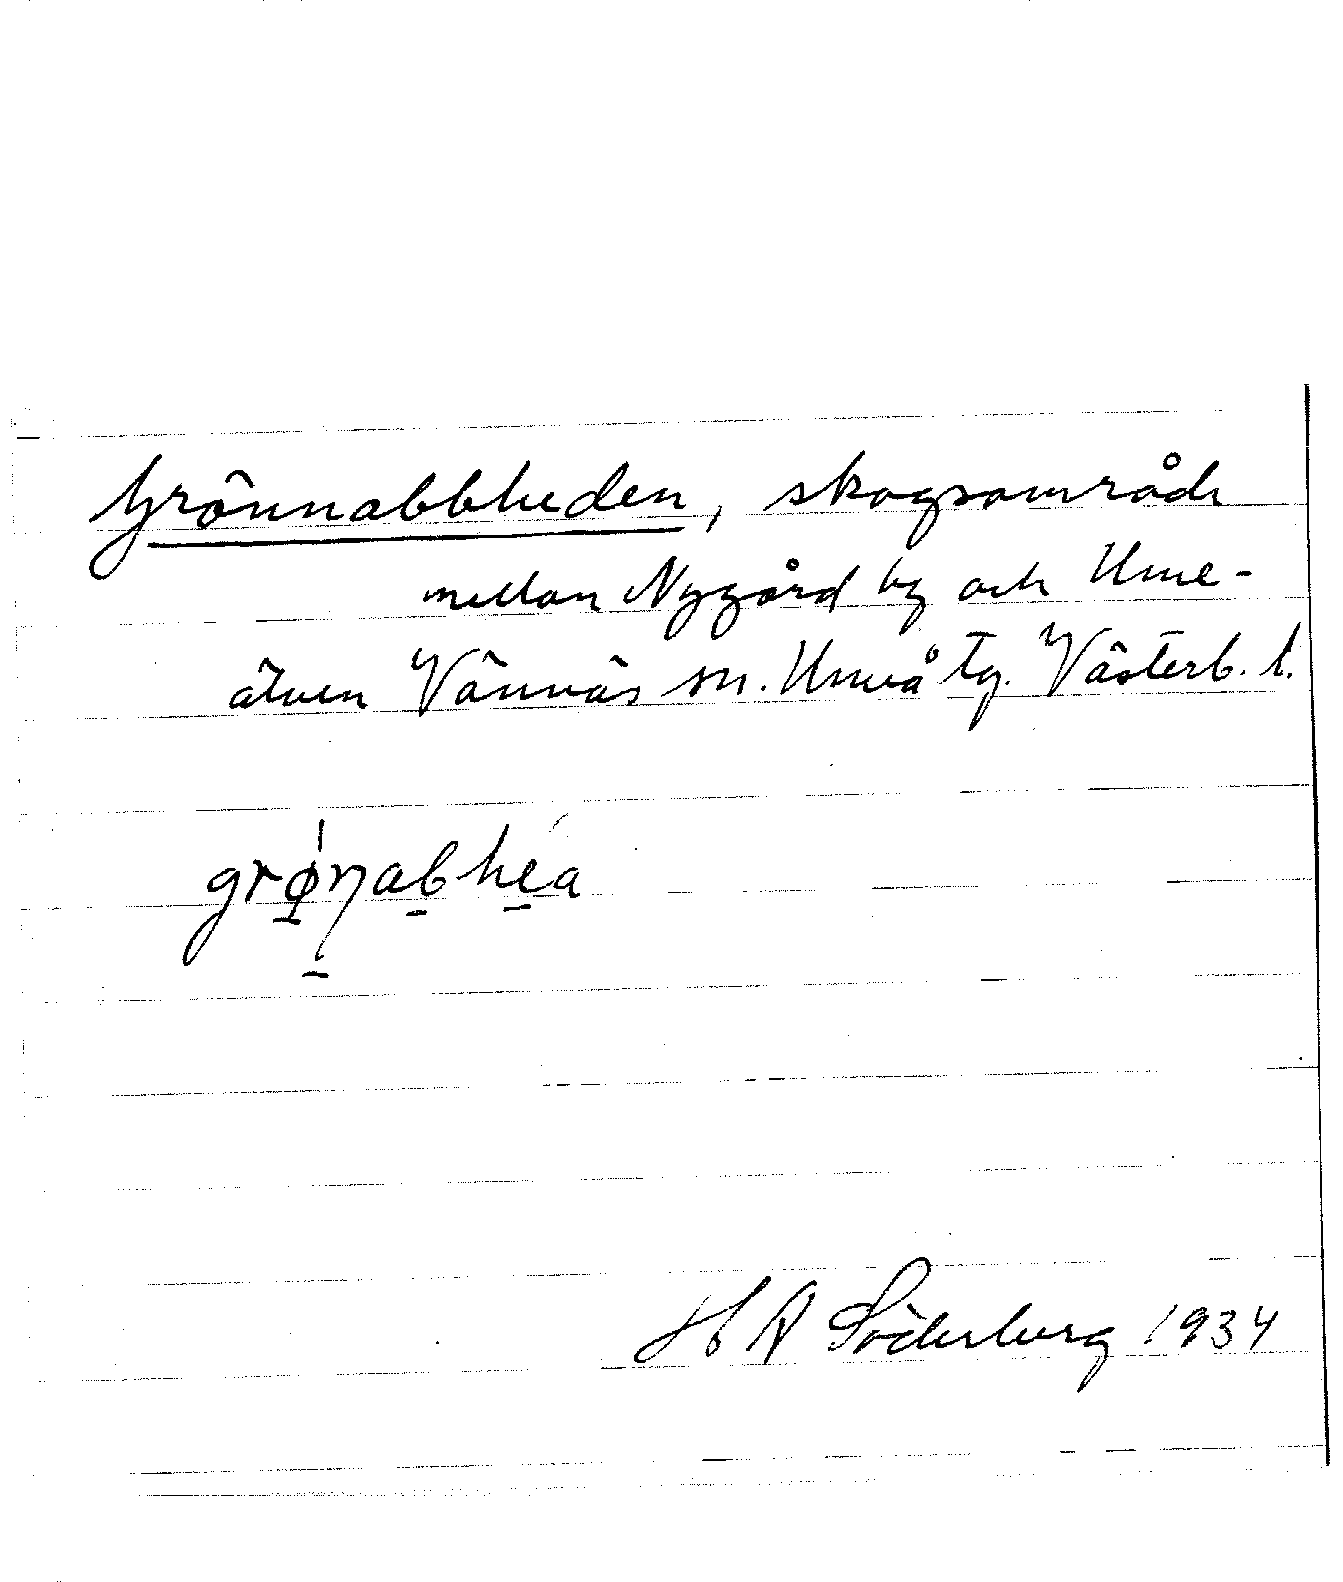 Grönnabbheden, skogsområde
mellan Nygård by och Ume-
älven Vännäs sn. Umeå tg. Västerb. l.
grǿ̱ŋ̱aḇhe̱a
H A Söderberg 1934